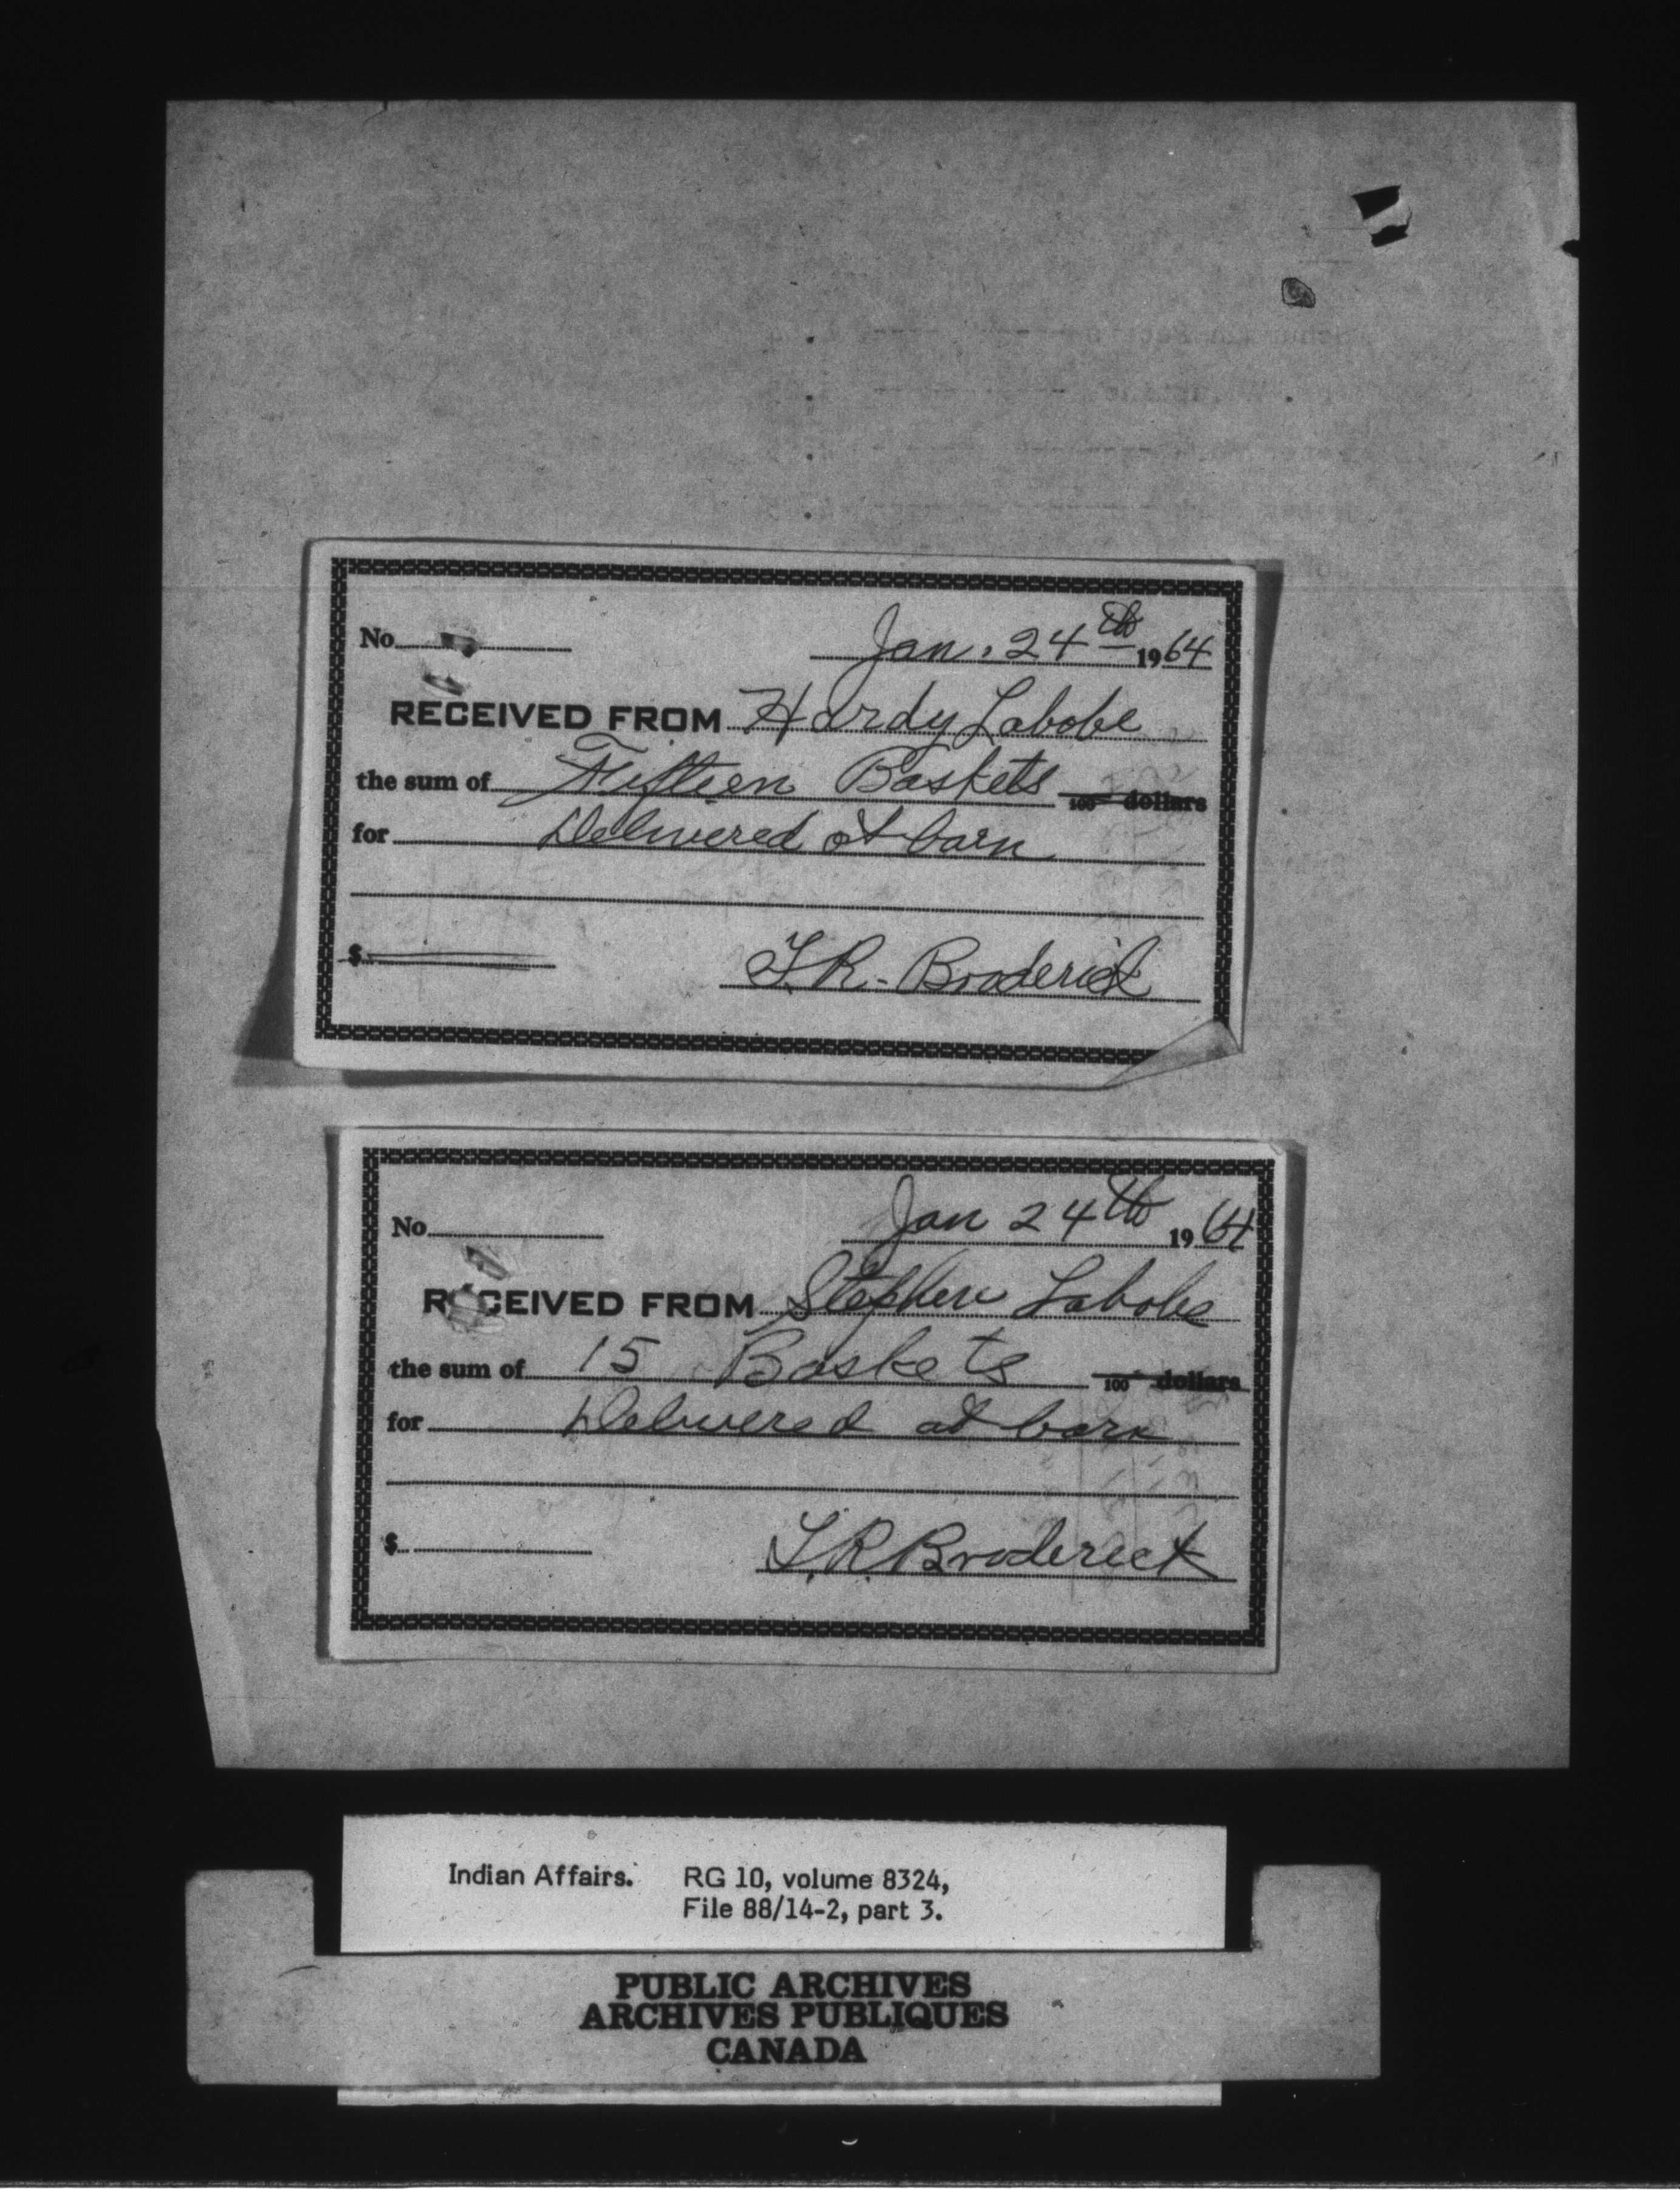 No.
Jan. 24th 1964
RECEIVED FROM Hardy Labobe
the sum of Fifteen Baskets 100 dollars
for Delivered at barn
$
T.R. Broderick
No.
Jan 24th 1964
RECEIVED FROM Stephen Labobe
the sum of 15 Baskets 100 dollars
for Delivered at barn
$
T.R. Broderick
Indian Affairs. RG 10, volume 8324,
File 88/14-2, part 3.
PUBLIC ARCHIVES
ARCHIVES PUBLIQUES
CANADA